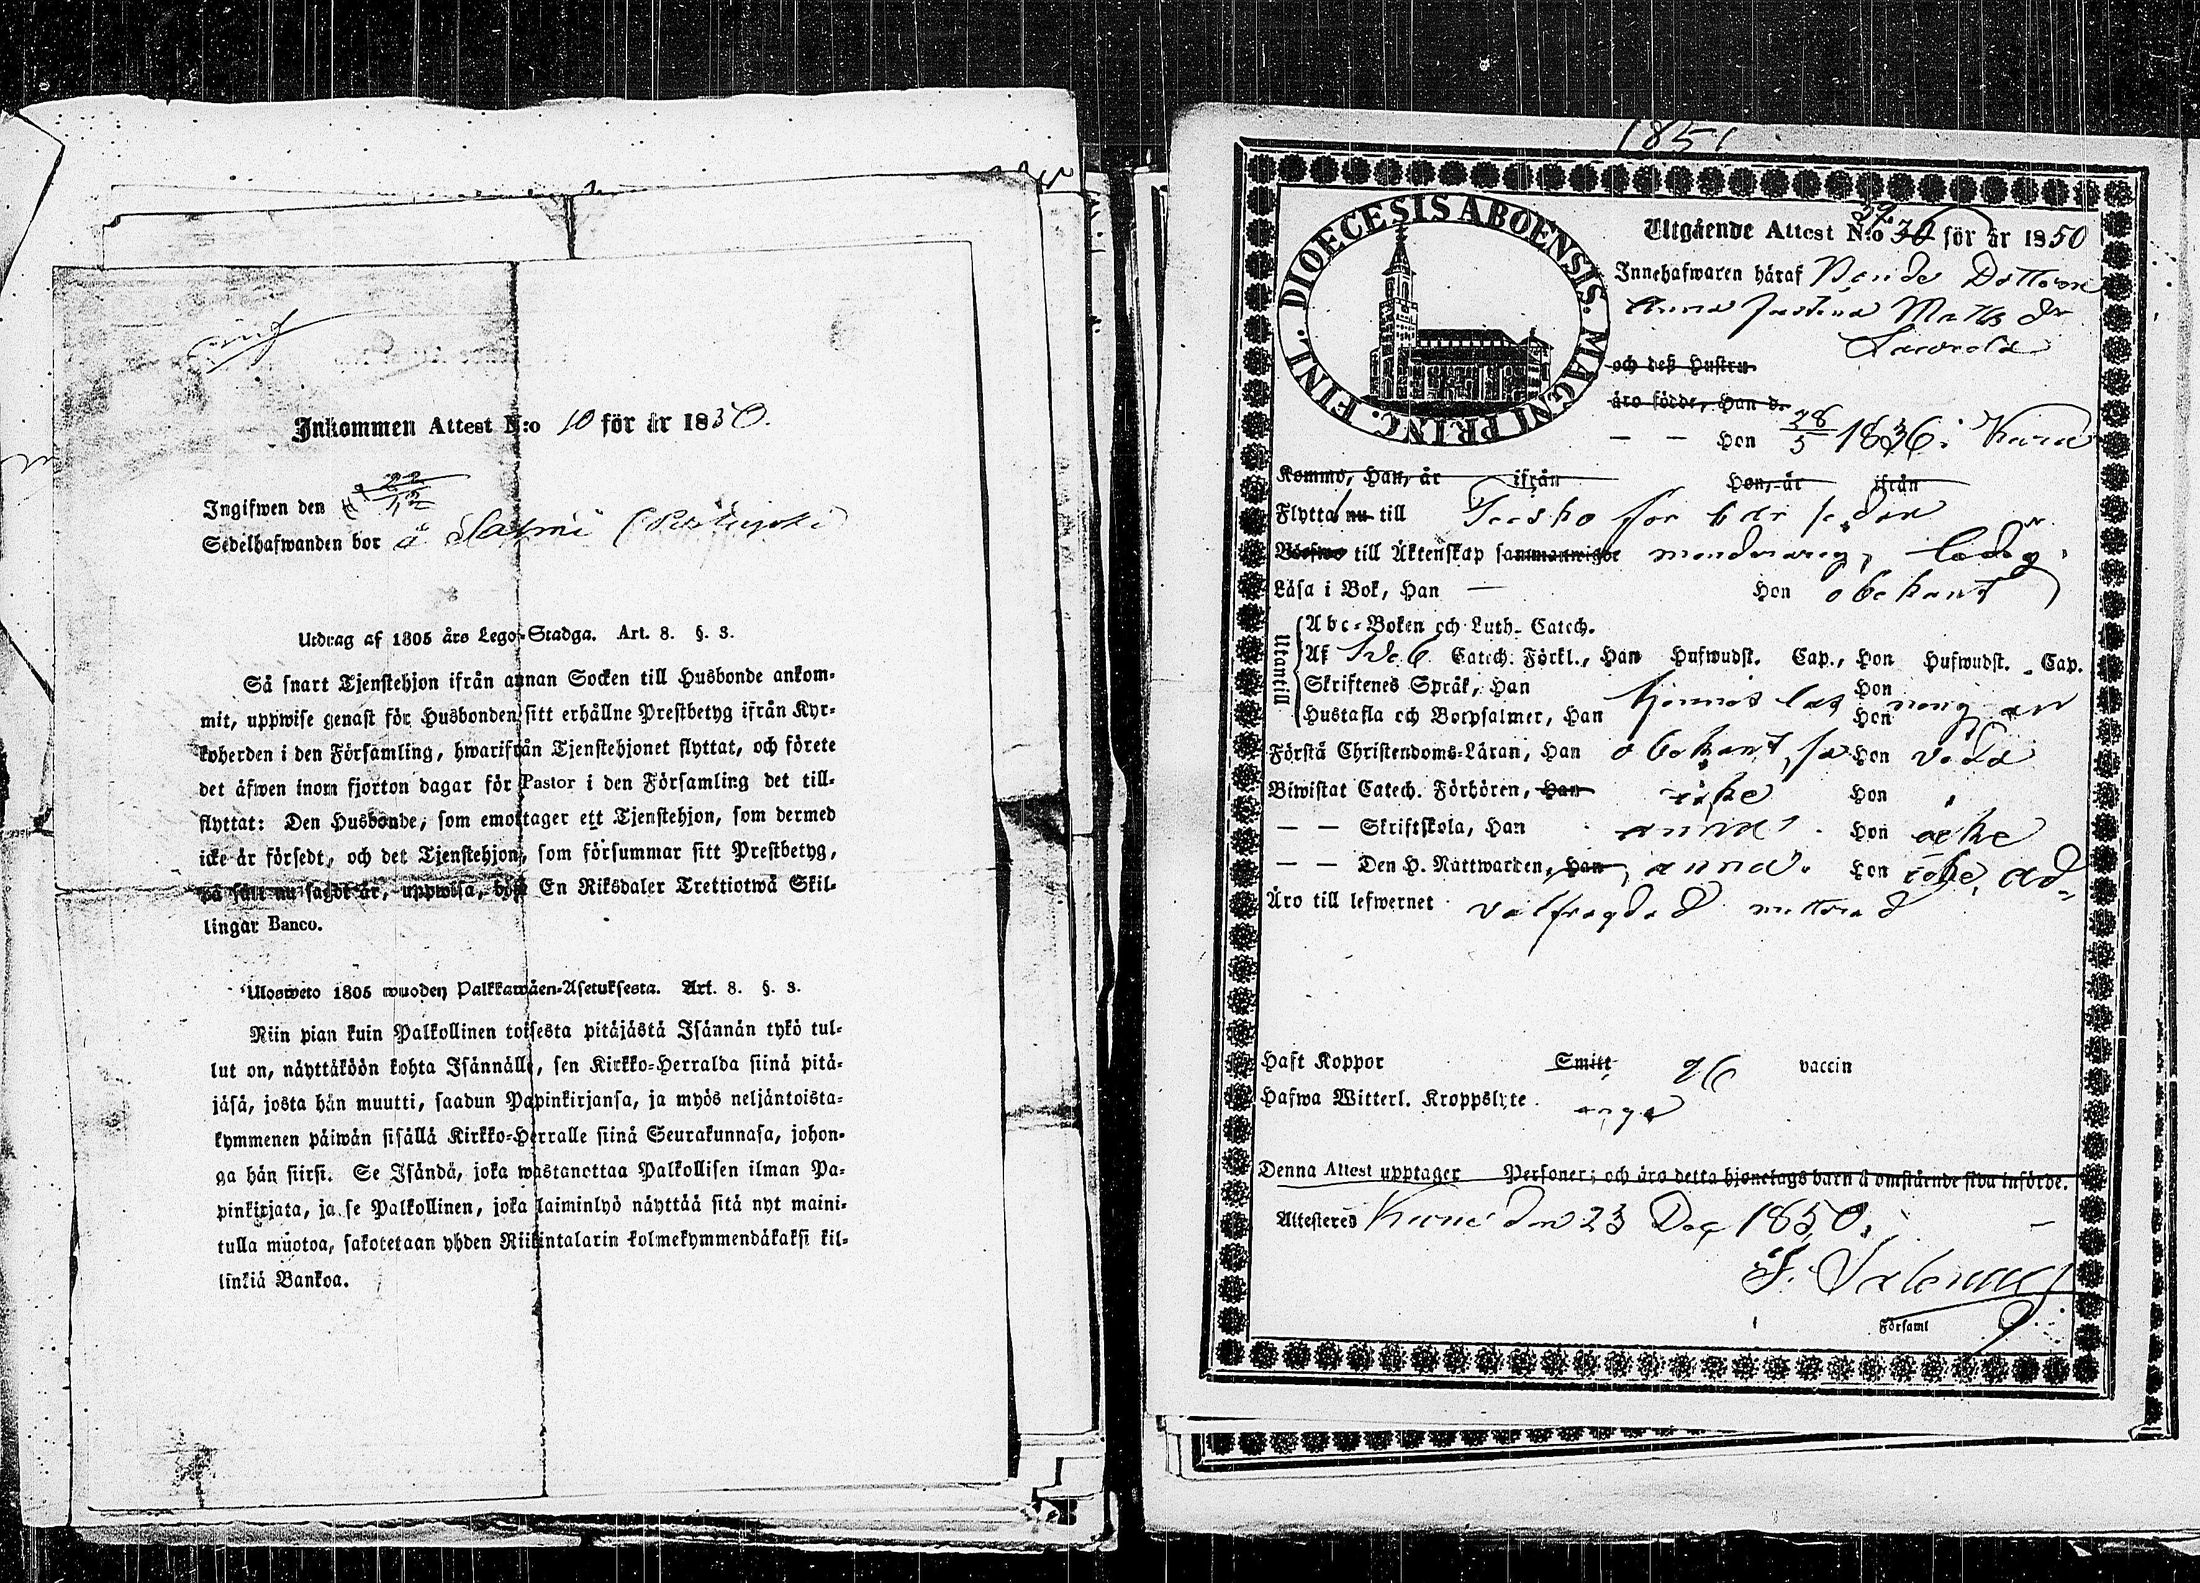 Inkommen Attest N:o 10 för år 1850.
Ingifwen den 22/12
Sedelhafwanden bor å Salmi
Utdrag af 1805 års Lego-Stadga. Art. 8. §. 3.
Så snart Tjenstehjon ifrån annan Socken till Husbonde ankom-
mit, uppwise genast för Husbonden sitt erhållne Prestbetyg ifrån Kyr-
koherden i den Församling, hwarifrån Tjenstehjonet flyttat, och förete
det äfwen inom fjorton dagar för Pastor i den Församling det till-
flyttat: Den Husbonde, som emottager ett Tjenstehjon, som dermed
icke är försedt, och det Tjenstehjon, som försummar sitt Prestbetyg,
på sätt nu sagdt är, uppwisa, böte En Riksdaler Trettiotwå Skil-
lingar Banco.
Ulosweto 1805 wuoden Palkkawäen-Asetuksesta. Art. 8. §. 3.
Niin pian kuin Palkollinen toisesta pitäjästä Isännän tykö tul-
lut on, näyttäköön kohta Isännälle, sen Kirkko-Herralda siinä pitä-
jäsä, josta hän muutti, saadun Papinkirjansa, ja myös neljäntoista-
kymmenen päiwän sisällä Kirkko-Herralle siinä Seurakunnasa, johon-
ga hän siirsi. Se Isändä, joka wastanottaa Palkollisen ilman Pa-
pinkirjata, ja se Palkollinen, joka laiminlyö näyttää sitä nyt maini-
tulla muotoa, sakotetaan yhden Riikintalarin kolmekymmendäkaksi kil-
linkiä Bankoa.
1851
DIOECESIS ABOENSIS. MAGNI PRINC. FINL.
39.
Utgående Attest N:o 36 för år 1850
Innehafwaren häraf Bonde Dottren
Anna Justina Matts dr
och deß Hustru
äro födde, Han d.
— — Hon 28/5 1836 i
Kommo, Han, år ifrån Hon, år ifrån
Flytta nu till Teisko för 6 år sedan
Böefwo till Äktenskap sammanwigde ledig.
Läsa i Bok, Han — Hon obekant
Utantill
Abc-Boken och Luth. Catech.
Af Catech. Förkl., Han Hufwudst. Cap., Hon Hufwudst. Cap.
Skriftenes Språk, Han Hon
Hustafla och Botpsalmer, Han Hon
Förstå Christendoms-Läran, Han obekant, Hon
Biwistat Catech. Förhören, Han icke Hon
— — Skriftskola, Han ännu Hon icke
— — Den H. Nattwarden, Han ännu Hon icke, ad-
Äro till lefwernet
Haft Koppor Smitt vaccin
Hafwa Witterl. Kroppslyte inga
Denna Attest upptager Personer; och äro detta hjonelags barn å omstående sida införde.
Attesteres den 23 Dec 1850.
Församl